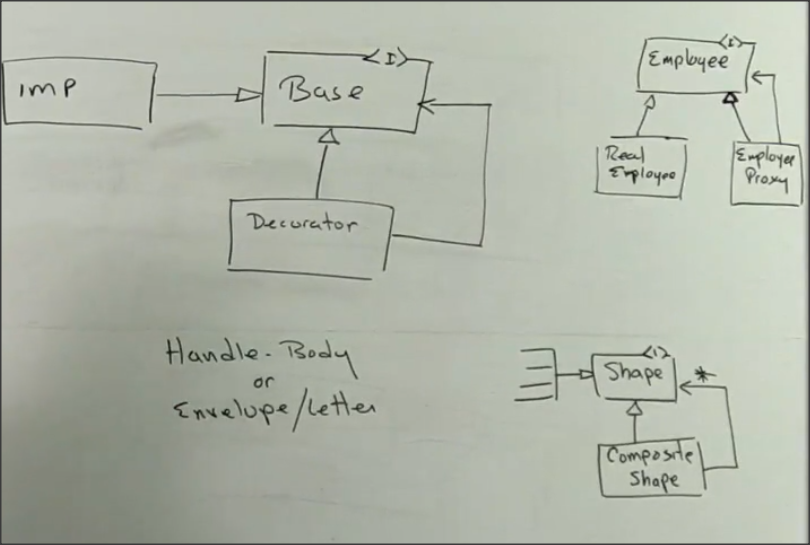 IMP
<I>
Base
Decorator
<I>
Employee
Real
Employee
Employee
Proxy
Handle-Body
or
Envelope/Letter
<I>
Shape
*
Composite
Shape